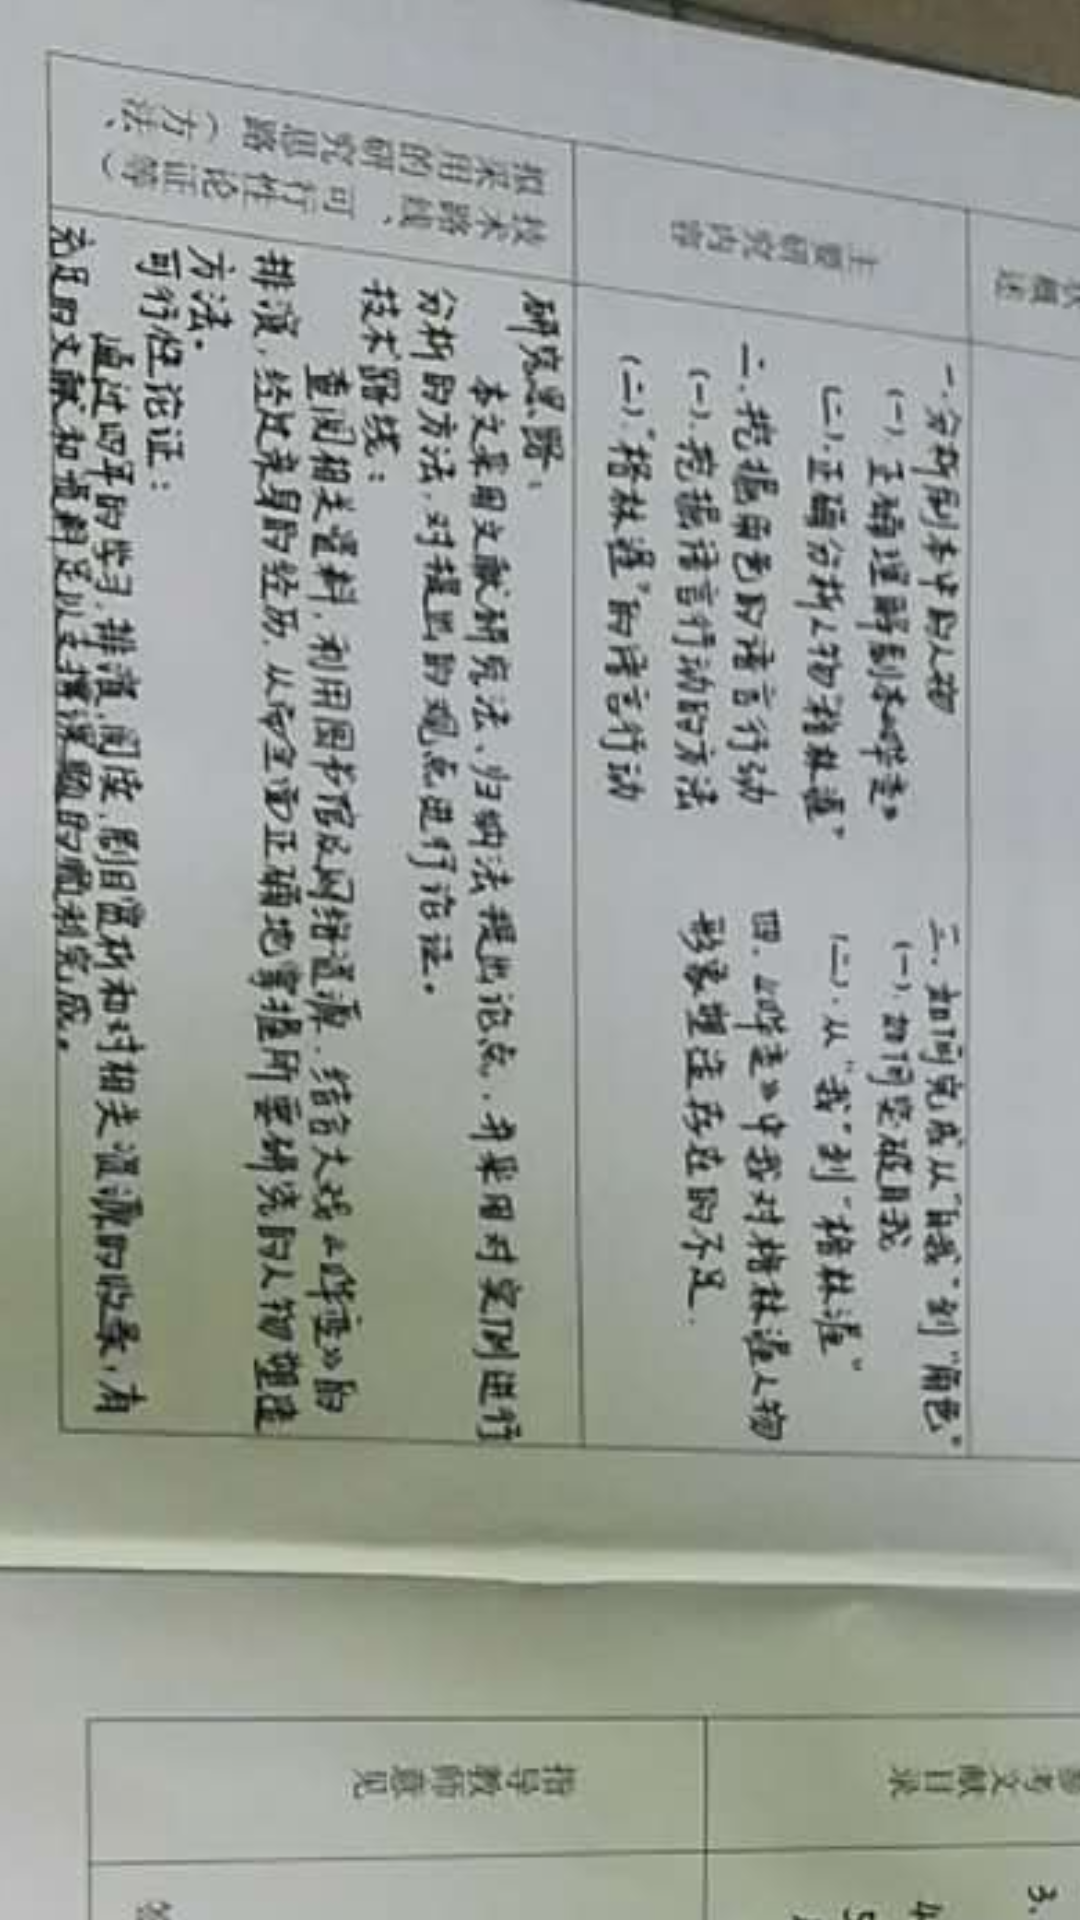 状概述
主要研究内容
一.分析剧本中的人物
(一).正确理解剧本《哗变》
(二).正确分析人物“格林渥”
二.挖掘角色的语言行动
(一).挖掘语言行动的方法
(二).“格林渥”的语言行动
三.如何完成从“自我”到“角色”
(一).如何突破自我
(二).从“我”到“格林渥”
四.《哗变》中我对格林渥人物
形象塑造存在的不足.
拟采用的研究思路(方法、
技术路线、可行性论证等)
研究思路:
本文采用文献研究法、归纳法提出论点,并采用对案例进行
分析的方法,对提出的观点进行论证。
技术路线:
查阅相关资料,利用图书馆及网络资源,结合大戏《哗变》的
排演,经过亲身的经历,从而全面正确地掌握所要研究的人物塑造
方法.
可行性论证:
通过四年的学习,排演,阅读,剧目赏析和对相关资源的收集,有
充足的文献和资料足以支撑课题的顺利完成。
参考文献目录
3.
4
5
指导教师意见